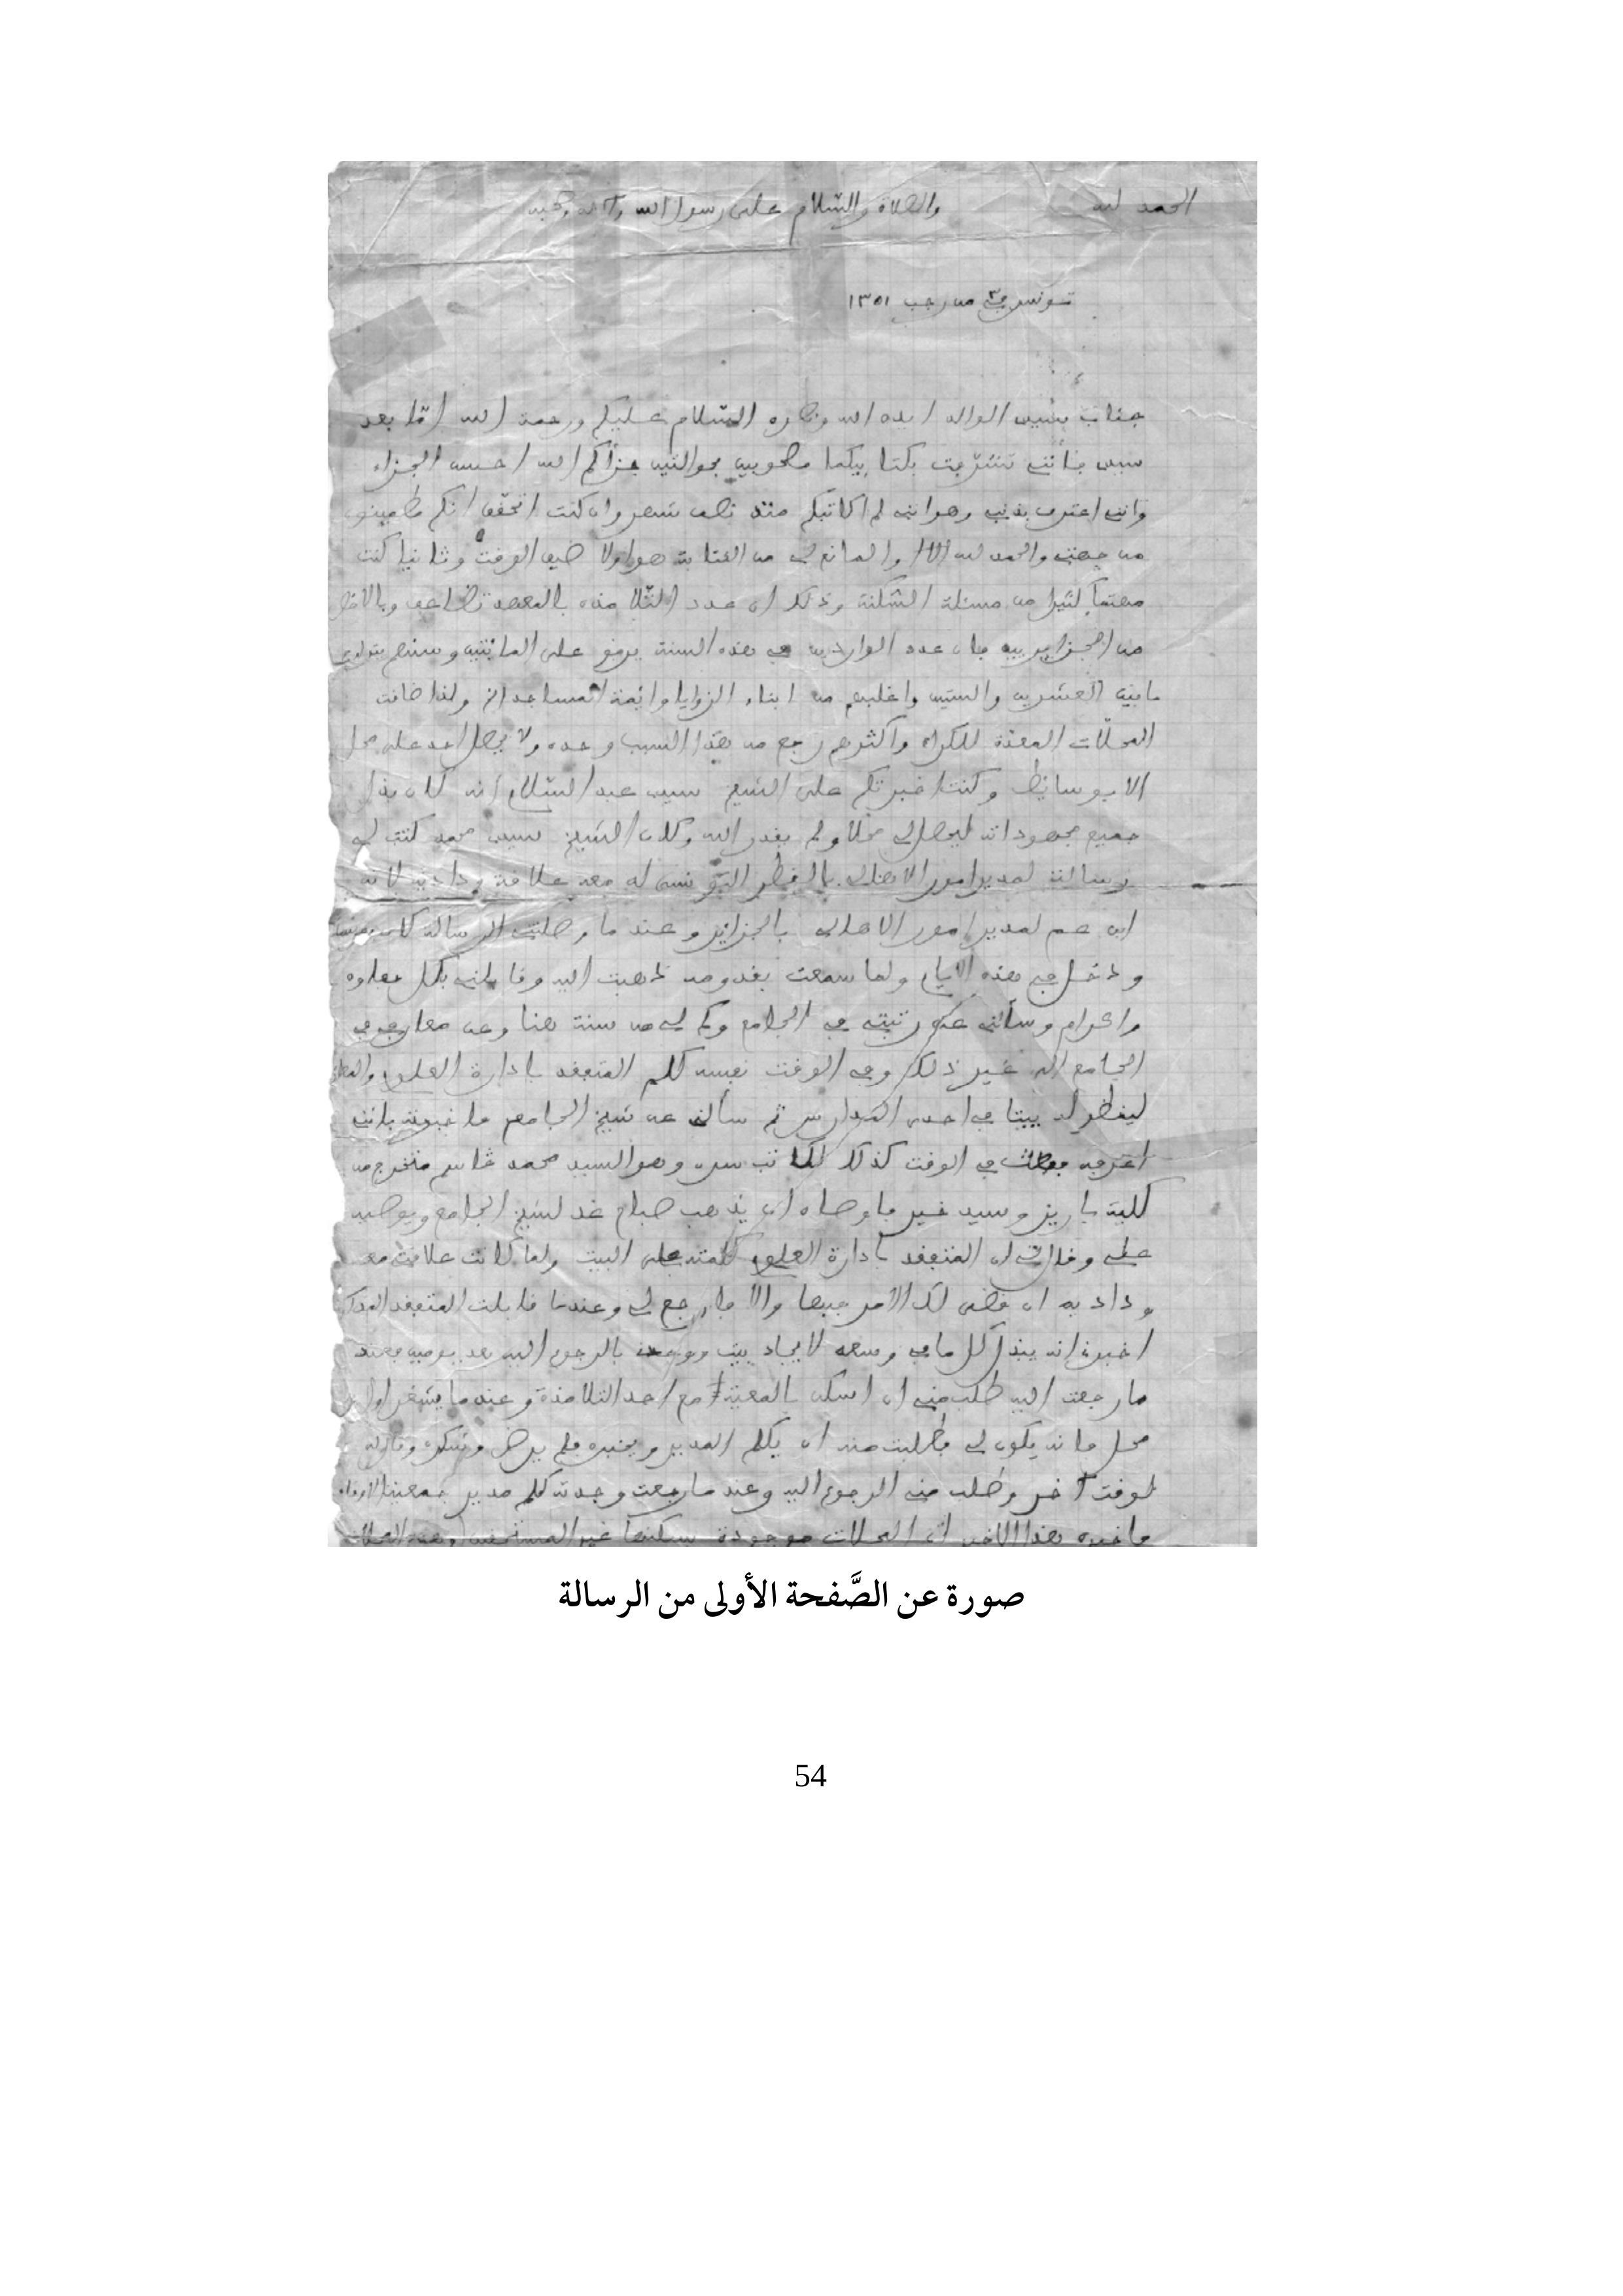 الحمد لله والصلاة والسّلام على رسول الله وآله وصحبه
تونس في ٣ من رجب ١٣٥١
جناب سيدي الوالد ايده الله ونصره السّلام عليكم ورحمة الله امّا بعد
سيدي فانّني تشرّفت بكتابيكما مصحوبين بحوالتين جزاكم الله احسن الجزاء
وانني اعترف بذنبي وهو انني لم اكاتبكم منذ نصف شهر وان كنت اتحقّق انكم مطمئنون
من جهتي والحمد لله الا والمانع لي من الكتابة هو اولا ضيق الوقت وثانيا كنت
مهتماً كثيرا من مسئلة السّكنة وذلك ان عدد التّلامذة بالمعهد تضاعف
من الجزايريين فان عدد الواردين في هذه السنة يربو على المائتين وسنهم
ما بين العشرين والستين واغلبهم من ابناء الزوايا وائمة المساجد الخ ولذا ضاقت
المحلّات المعدّة للكراء واكثرهم رجع من هذا السبب وحده ولا يحصل احد على محل
الا بوسائط وكنت اخبرتكم على الشيخ سيدي عبد السّلام انه كان بذل
جميع مجهوداته ليحصل لي محلا ولم يقدر الله وكان الشيخ سيدي محمد كتب لي
رسالة لمدير امور الاهالي بالقطر التونسي له معه علاقة ودادية لانه
ابن عم لمدير امور الاهالي بالجزائر وعند ما وصلتني الرسالة كان
ودخل في هذه الايام ولما سمعت بقدومه ذهبت اليه وقابلني بكل
واكرام وسألني عن رتبتي في الجامع وكم لي من سنة هنا وعن معارفي في
الجامع الى غير ذلك وفي الوقت نفسه كلم المتفقد بادارة العلوم
لينظر لي بيتا في احدى المدارس ثم سألني عن شيخ الجامع فاخبرته بانني
اعرفه في الوقت كذلك لكاتب سره وهو السيد محمد قاسم متخرج من
كلية باريز وسيد خير فاوصاه ان يذهب صباح غد لشيخ الجامع ويوصيه
علي وقال لي ان المتفقد بادارة العلوم كلمته على البيت ولما كانت علاقتي معه
ودادية ان قضى لك الامر فبها والا فارجع لي وعندما قابلت المتفقد
اخبرني انه يبذل كل ما في وسعه لايجاد بيت بالرجوع اليه بعد يومين فعند
ما رجعت اليه طلب مني ان اسكن مع احد التلامذة وعند ما يشغر
محل فانه يكون لي فطلبت منه ان يكلم المدير ويخبره فلم يرض
لوقت آخر وطلب مني الرجوع اليه وعند ما رجعت وجدته كلم مدير جمعية الاوقاف
فاخبره هذا الاخير ان المحلات موجودة سكنها غير المستحقين
صورة عن الصَّفحة الأولى من الرسالة
54